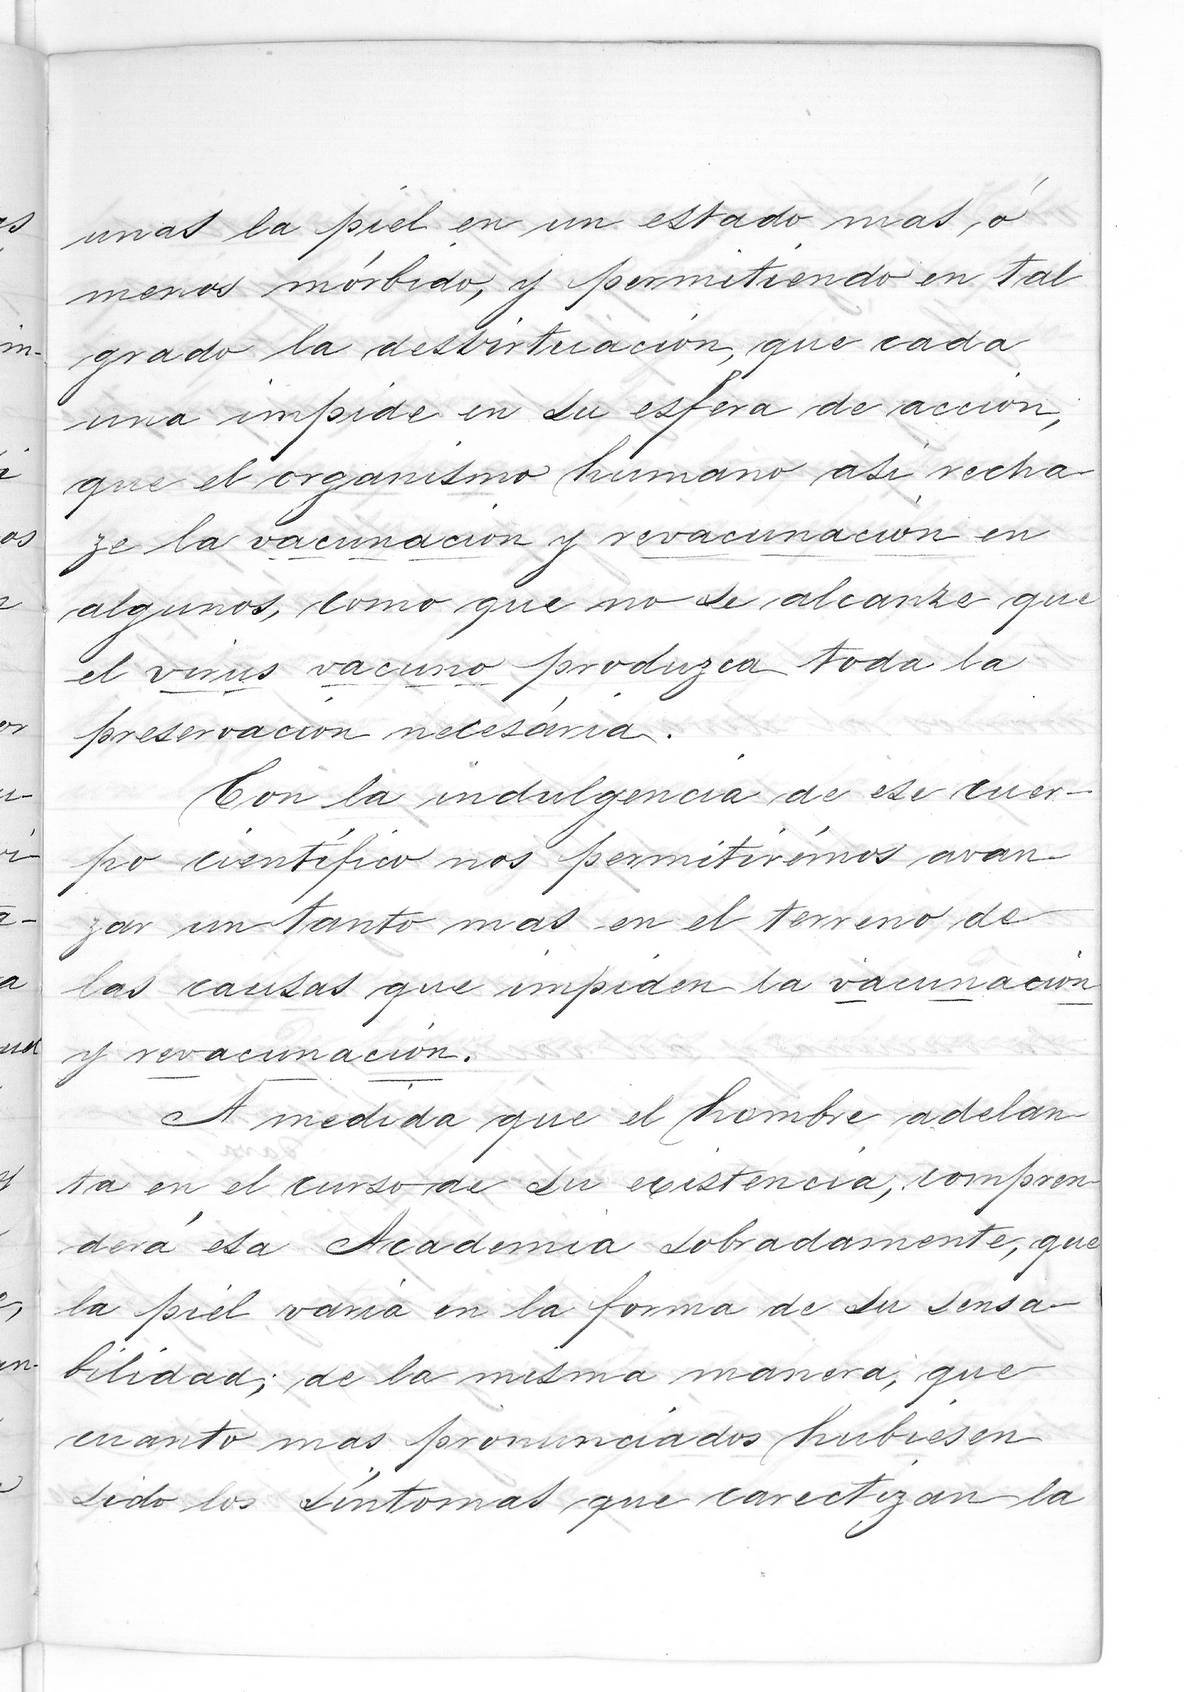 unas la piel en un estado mas, ó
menos mórbido, y permitiendo en tal
grado la desvirtuación, que cada
una impide en su esfera de acción,
que el organismo humano asi recha-
ze la vacunación y revacunación en
algunos, como que no se alcanze que
el virus vacuno produzca toda la
preservación necesária.
Con la indulgencia de ese cuer-
po científico nos permitirémos avan-
zar un tanto mas en el terreno de
las causas que impiden la vacunación
y revacunación.
A medida que el hombre adelan-
ta en el curso de su existencia, compren-
derá esa Academia sobradamente, que
la piel varia en la forma de su sensa-
bilidad; de la misma manera, que
cuanto mas pronunciados hubiesen
sido los síntomas que carectizan la